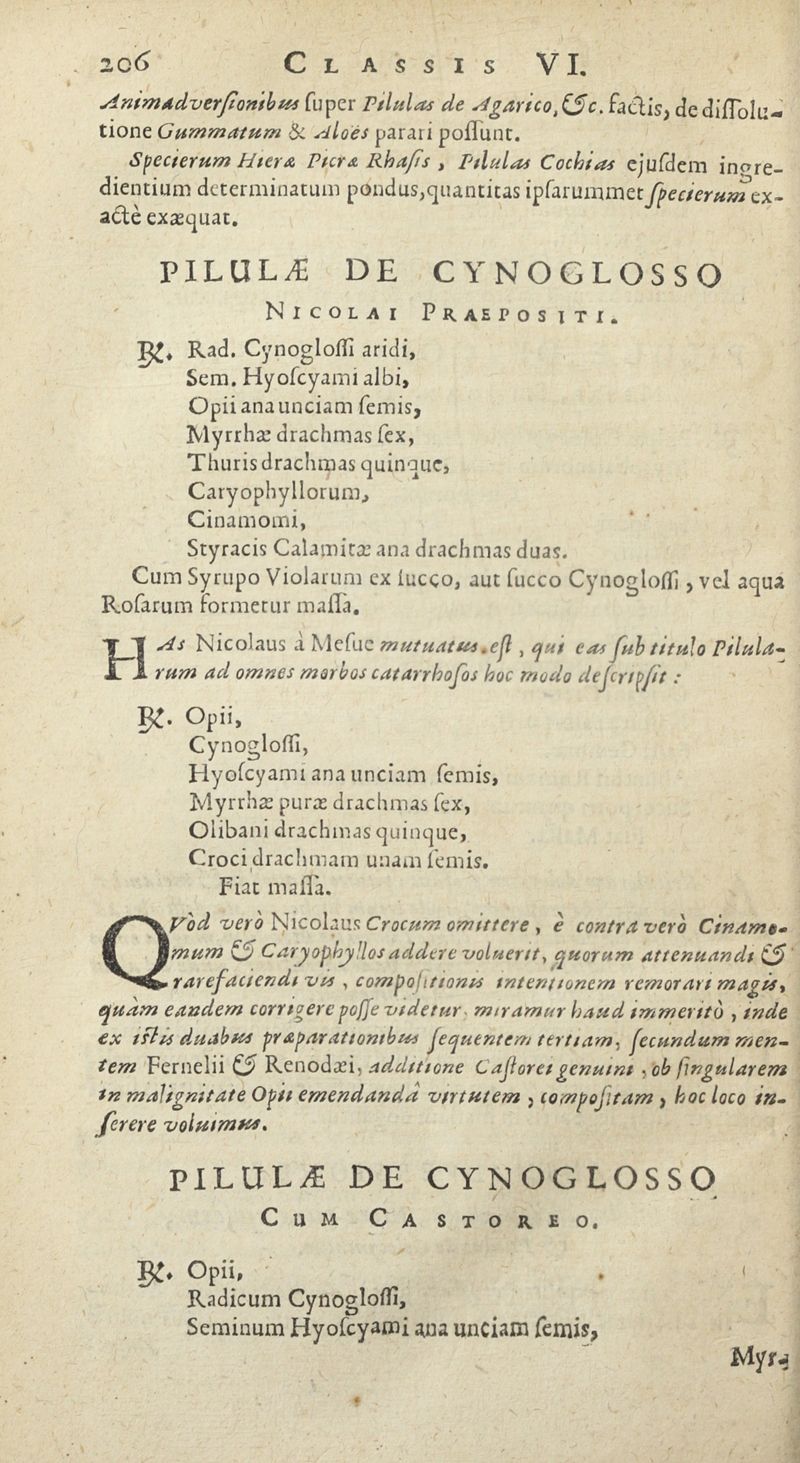 206 CLASSIS VI.
Animadversionibus ſuper Pilulas de Agarico, &c. factis, de diſſolu-
tione Gummatum & Aloës parari poſſunt.
Specierum Hieræ Picræ Rhaſis, Pilulas Cochias ejuſdem ingre-
dientium determinatum pondus, quantitas ipſarummet ſpecierum ex-
actè exæquat.
PILULÆ DE CYNOGLOSSO
NICOLAI PRAEPOSITI.
℞. Rad. Cynogloſſi aridi,
Sem. Hyoſcyami albi,
Opii ana unciam ſemis,
Myrrhæ drachmas ſex,
Thuris drachmas quinque,
Caryophyllorum,
Cinamomi,
Styracis Calamitæ ana drachmas duas.
Cum Syrupo Violarum ex ſucco, aut ſucco Cynogloſſi, vel aqua
Roſarum formetur maſſa.
HAs Nicolaus à Meſue mutuatus.eſt, qui eas ſub titulo Pilula-
rum ad omnes morbos catarrhoſos hoc modo deſcripſit:
℞. Opii,
Cynogloſſi,
Hyoſcyami ana unciam ſemis,
Myrrhæ puræ drachmas ſex,
Olibani drachmas quinque,
Croci drachmam unam ſemis.
Fiat maſſa.
QVòd verò Nicolaus Crocum omittere, è contra verò Cinamo-
mum & Caryophyllos addere voluerit, quorum attenuandi &
rarefaciendi vis, compoſitionis intentionem remorari magis,
quàm eandem corrigere poſſe videtur. miramur haud immeritò, inde
ex iſtis duabus præparationibus ſequentem tertiam, ſecundum men-
tem Fernelii & Renodæi, additione Caſtorei genuini, ob ſingularem
in malignitate Opii emendandâ virtutem, compoſitam, hoc loco in-
ſerere voluimus.
PILULÆ DE CYNOGLOSSO
CUM CASTOREO.
℞. Opii,
Radicum Cynogloſſi,
Seminum Hyoſcyami ana unciam ſemis,
Myr-